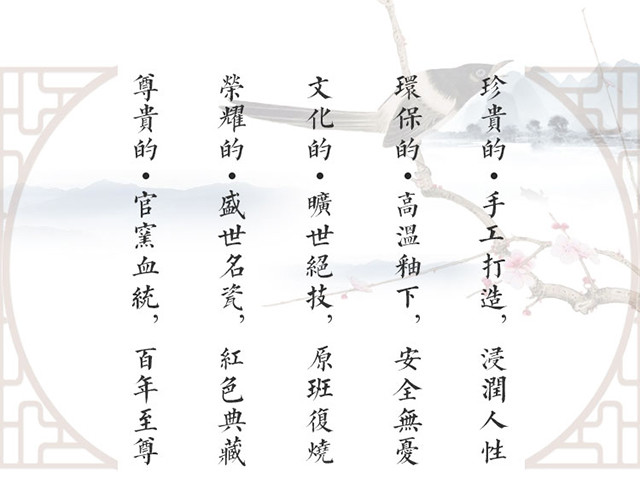 珍貴的·手工打造，浸潤人性
環保的·高溫釉下，安全無憂
文化的·曠世絕技，原班復燒
榮耀的·盛世名瓷，紅色典藏
尊貴的·官窯血統，百年至尊